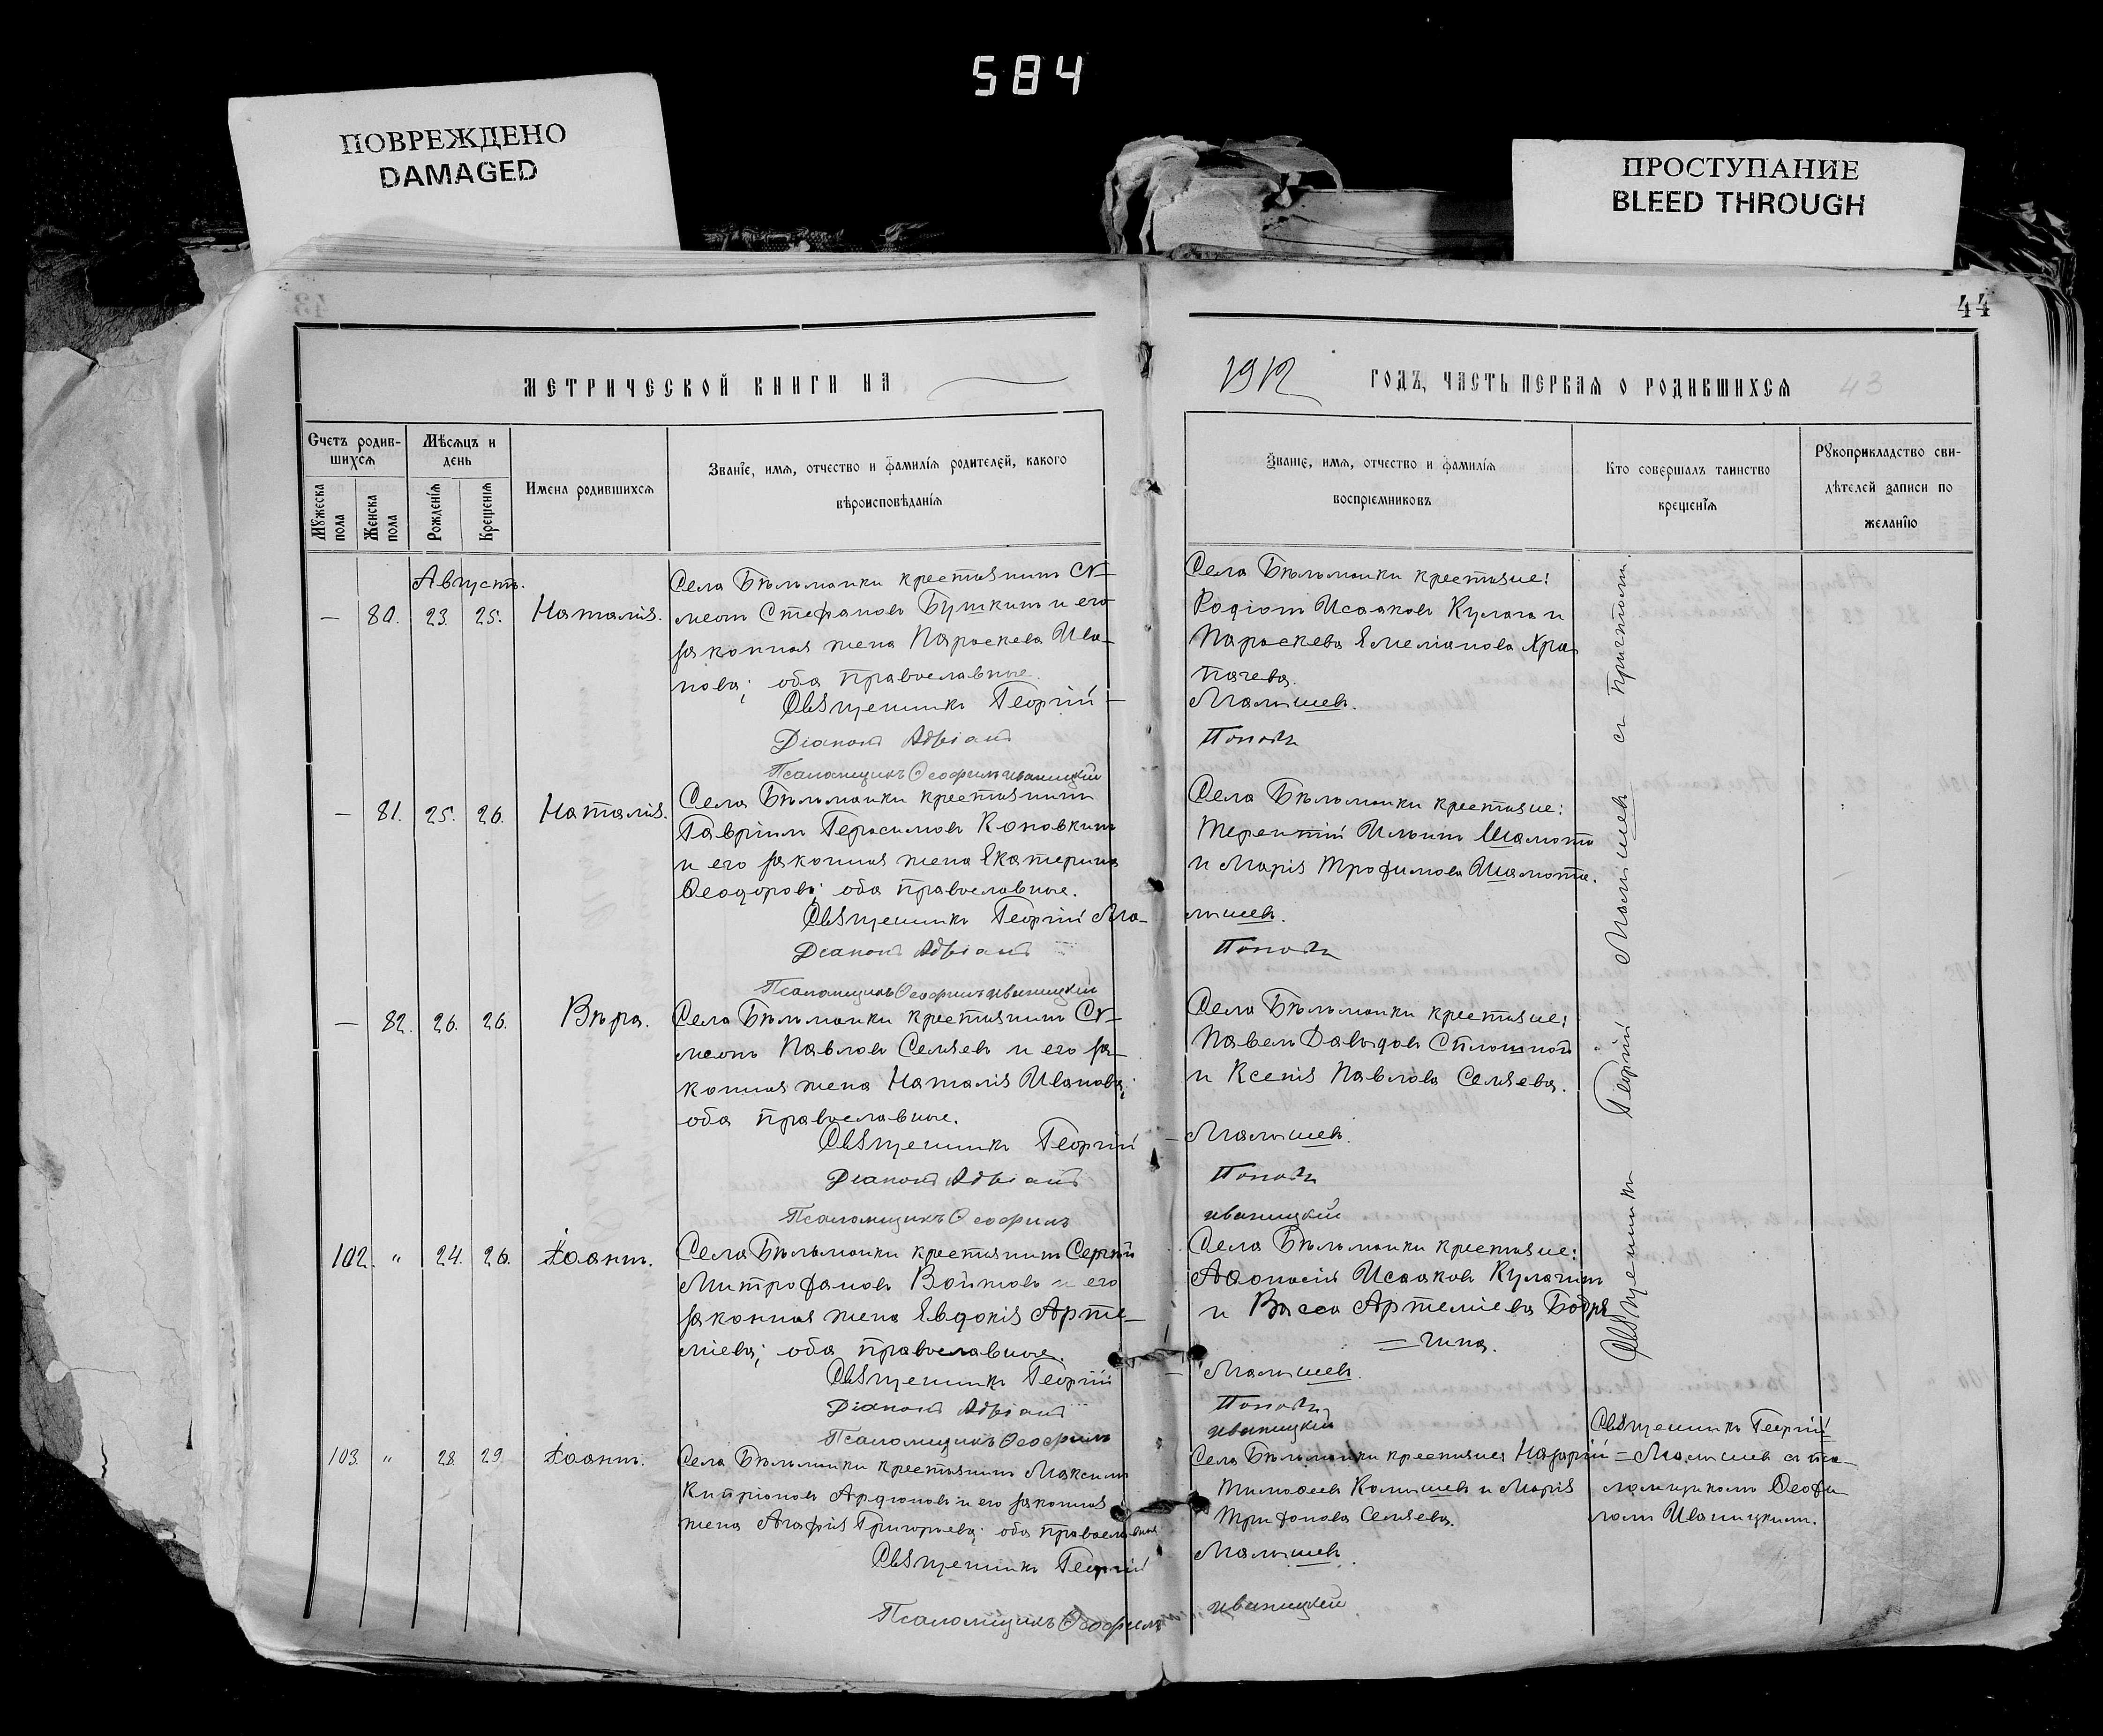 584
ПОВРЕЖДЕНО
DAMAGED
ПРОСТУПАНИЕ
BLEED THROUGH
44
МЕТРИЧЕСКОЙ КНИГИ НА
1912 ГОДЪ, ЧАСТЬ ПЕРВАЯ О РОДИВШИХСЯ
43
Счетъ родив-
шихся
Мужеска пола
Женска пола
Мѣсяцъ и
день
Рожденія
Крещенія
Имена родившихся
Званіе, имя, отчество и фамилія родителей, какого
вѣроисповѣданія
Званіе, имя, отчество и фамилія
воспріемниковъ
Кто совершалъ таинство
крещенія
Рукоприкладство сви-
дѣтелей записи по
желанію
Августъ.
— 80. 23. 25. Наталія.
Села Бѣльманки крестьянинъ Сѵ-
меонъ Стефановъ Бушкинъ и его
законная жена Параскева Ива-
нова; оба православные.
Священникъ Георгій
Діаконъ Адріанъ
Псаломщикъ Ѳеофилъ Иваницкій
Села Бѣльманки крестьяне:
Родіонъ Исааковъ Кулага и
Параскева Емеліанова Хра-
пачева.
Малышевъ.
Поповъ
— 81. 25. 26. Наталія.
Села Бѣльманки крестьянинъ
Гавріилъ Герасимовъ Коновкинъ
и его законная жена Екатерина
Ѳеодорова; оба православные.
Священникъ Георгій Ма-
Діаконъ Адріанъ
Псаломщикъ Ѳеофилъ Иваницкій
Села Бѣльманки крестьяне:
Терентій Ильинъ Шамота
и Марія Трофимова Шамота.
лышевъ.
Поповъ
— 82. 26. 26. Вѣра.
Села Бѣльманки крестьянинъ Сѵ-
меонъ Павловъ Селяевъ и его за-
конная жена Наталія Иванова;
оба православные.
Священникъ Георгій
Діаконъ Адріанъ
Псаломщикъ Ѳеофилъ
Села Бѣльманки крестьяне:
Павелъ Давыдовъ Сплошной
и Ксенія Павлова Селяева.
Малышевъ.
Поповъ
Иваницкій
102. " 24. 26. Іоаннъ.
Села Бѣльманки крестьянинъ Сергій
Митрофановъ Войтовъ и его
законная жена Евдокія Арте-
міева; оба православные.
Священникъ Георгій
Діаконъ Адріанъ
Псаломщикъ Ѳеофилъ
Села Бѣльманки крестьяне:
Аѳанасій Исааковъ Кулагинъ
и Васса Артеміева Бодря
= гина.
Малышевъ.
Поповъ
Иваницкій
Священникъ Георгій Малышевъ съ причтомъ.
103. " 28. 29. Іоаннъ.
Села Бѣльманки крестьянинъ Максимъ
Кипріановъ Ардіоновъ и его законная
жена Агафія Григорьева; оба православные
Священникъ Георгій
Псаломщикъ Ѳеофилъ
Села Бѣльманки крестьяне: Назарій
Тимоѳеевъ Камышевъ и Марія
Трифонова Селяева.
Малышевъ.
Иваницкій
Священникъ Георгій
= Малышевъ съ пса-
ломщикомъ Ѳеофи-
ломъ Иваницкимъ.